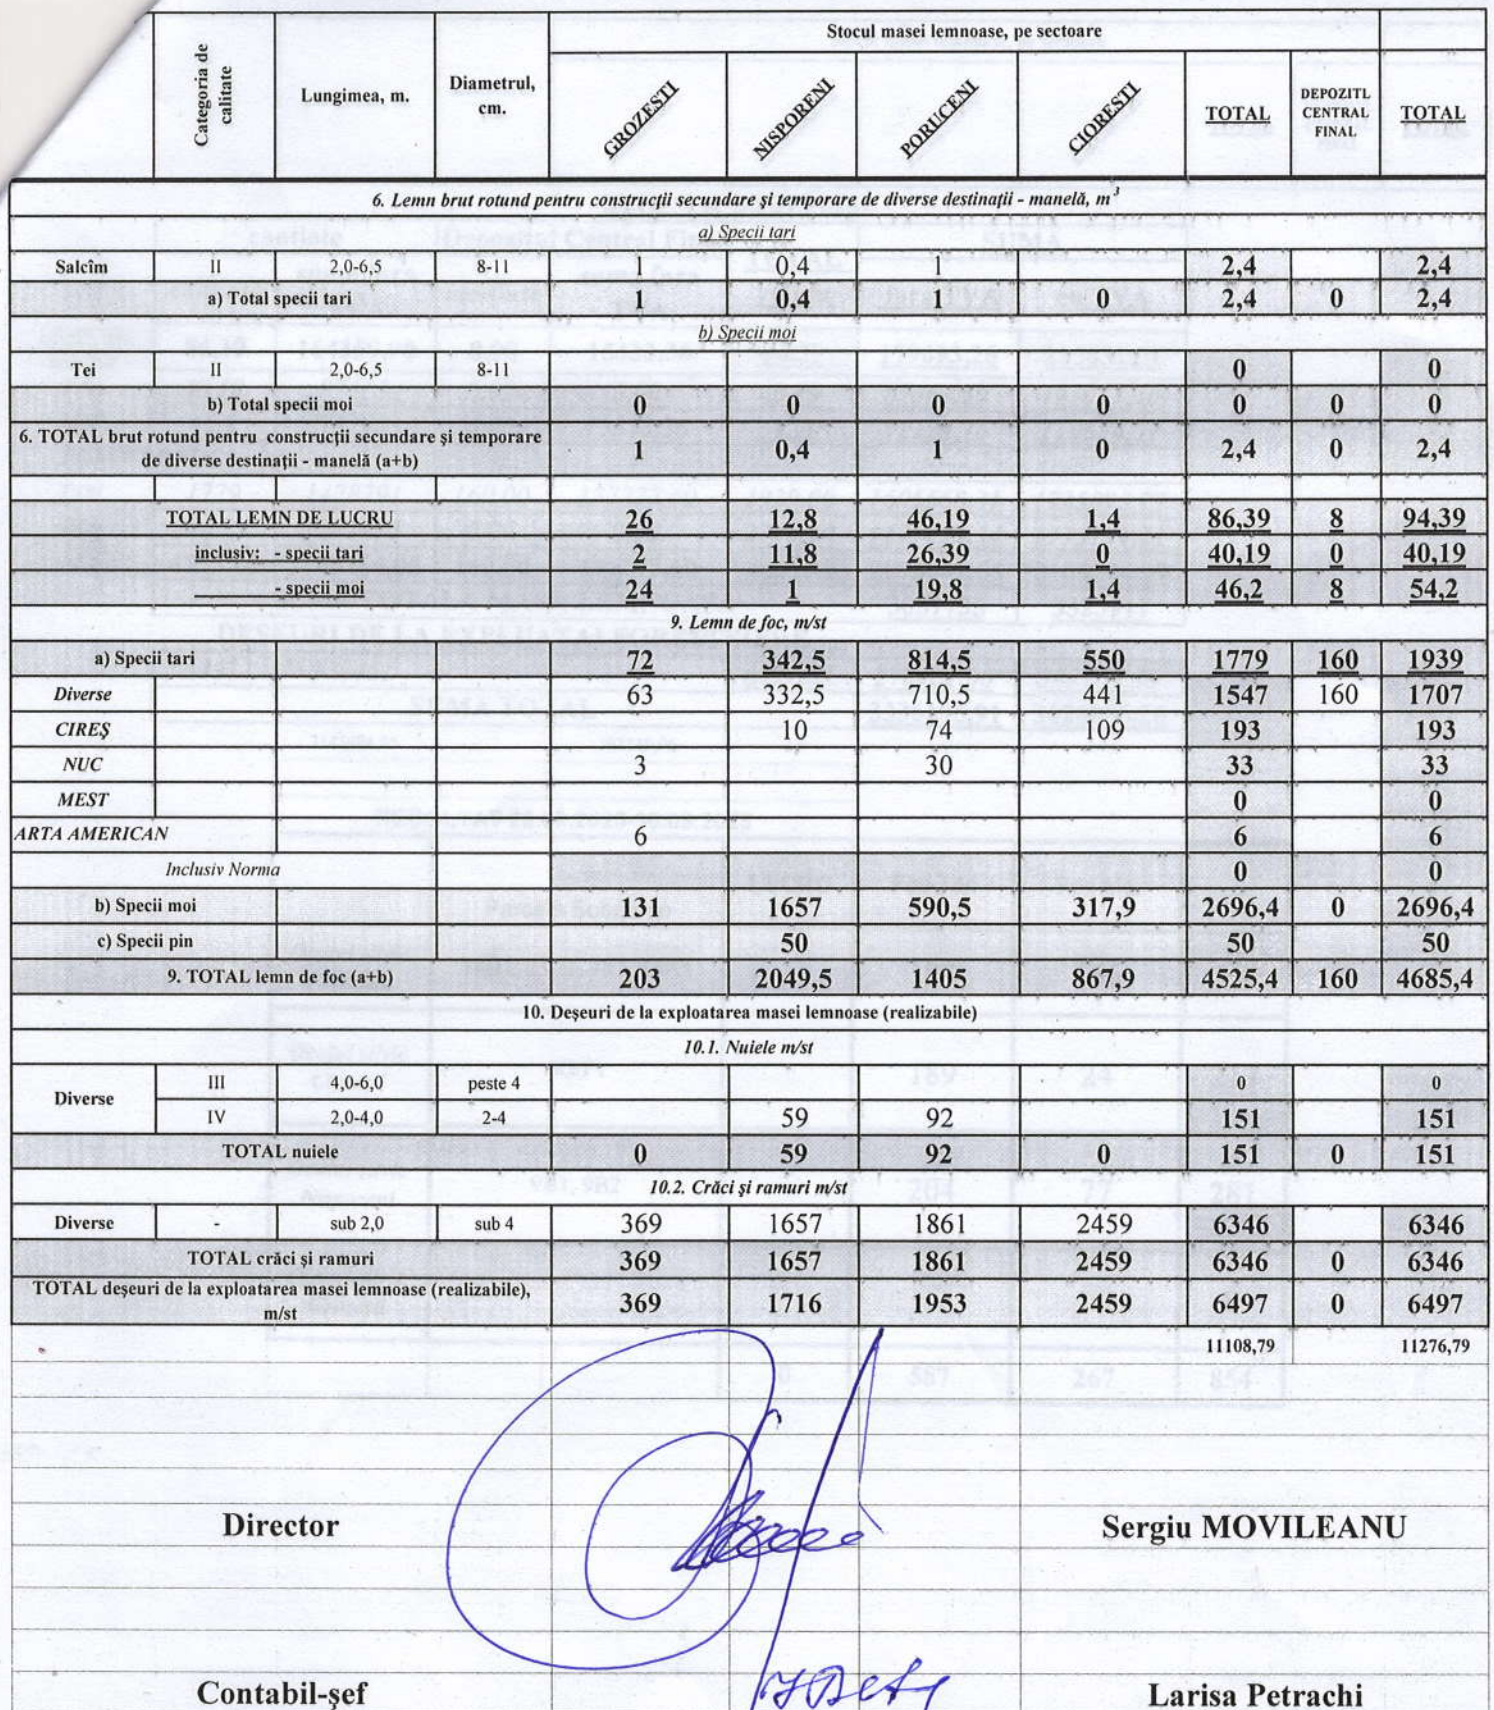 Stocul masei lemnoase, pe sectoare
Categoria de calitate Lungimea, m. Diametrul, cm. GROZESTI NISPORENI PORUCENI CIORESTI TOTAL DEPOZITL CENTRAL FINAL TOTAL
6. Lemn brut rotund pentru construcţii secundare şi temporare de diverse destinaţii - manelă, m³
a) Specii tari
Salcîm II 2,0-6,5 8-11 1 0,4 1 2,4 2,4
a) Total specii tari 1 0,4 1 0 2,4 0 2,4
b) Specii moi
Tei II 2,0-6,5 8-11 0 0
b) Total specii moi 0 0 0 0 0 0 0
6. TOTAL brut rotund pentru construcţii secundare şi temporare
de diverse destinaţii - manelă (a+b) 1 0,4 1 0 2,4 0 2,4
TOTAL LEMN DE LUCRU 26 12,8 46,19 1,4 86,39 8 94,39
inclusiv: - specii tari 2 11,8 26,39 0 40,19 0 40,19
- specii moi 24 1 19,8 1,4 46,2 8 54,2
9. Lemn de foc, m/st
a) Specii tari 72 342,5 814,5 550 1779 160 1939
Diverse 63 332,5 710,5 441 1547 160 1707
CIREŞ 10 74 109 193 193
NUC 3 30 33 33
MEST 0 0
ARTA AMERICAN 6 6 6
Inclusiv Norma 0 0
b) Specii moi 131 1657 590,5 317,9 2696,4 0 2696,4
c) Specii pin 50 50 50
9. TOTAL lemn de foc (a+b) 203 2049,5 1405 867,9 4525,4 160 4685,4
10. Deşeuri de la exploatarea masei lemnoase (realizabile)
10.1. Nuiele m/st
Diverse III 4,0-6,0 peste 4 0 0
IV 2,0-4,0 2-4 59 92 151 151
TOTAL nuiele 0 59 92 0 151 0 151
10.2. Crăci şi ramuri m/st
Diverse - sub 2,0 sub 4 369 1657 1861 2459 6346 6346
TOTAL crăci şi ramuri 369 1657 1861 2459 6346 0 6346
TOTAL deşeuri de la exploatarea masei lemnoase (realizabile),
m/st 369 1716 1953 2459 6497 0 6497
11108,79 11276,79
Director Sergiu MOVILEANU
Contabil-şef Larisa Petrachi